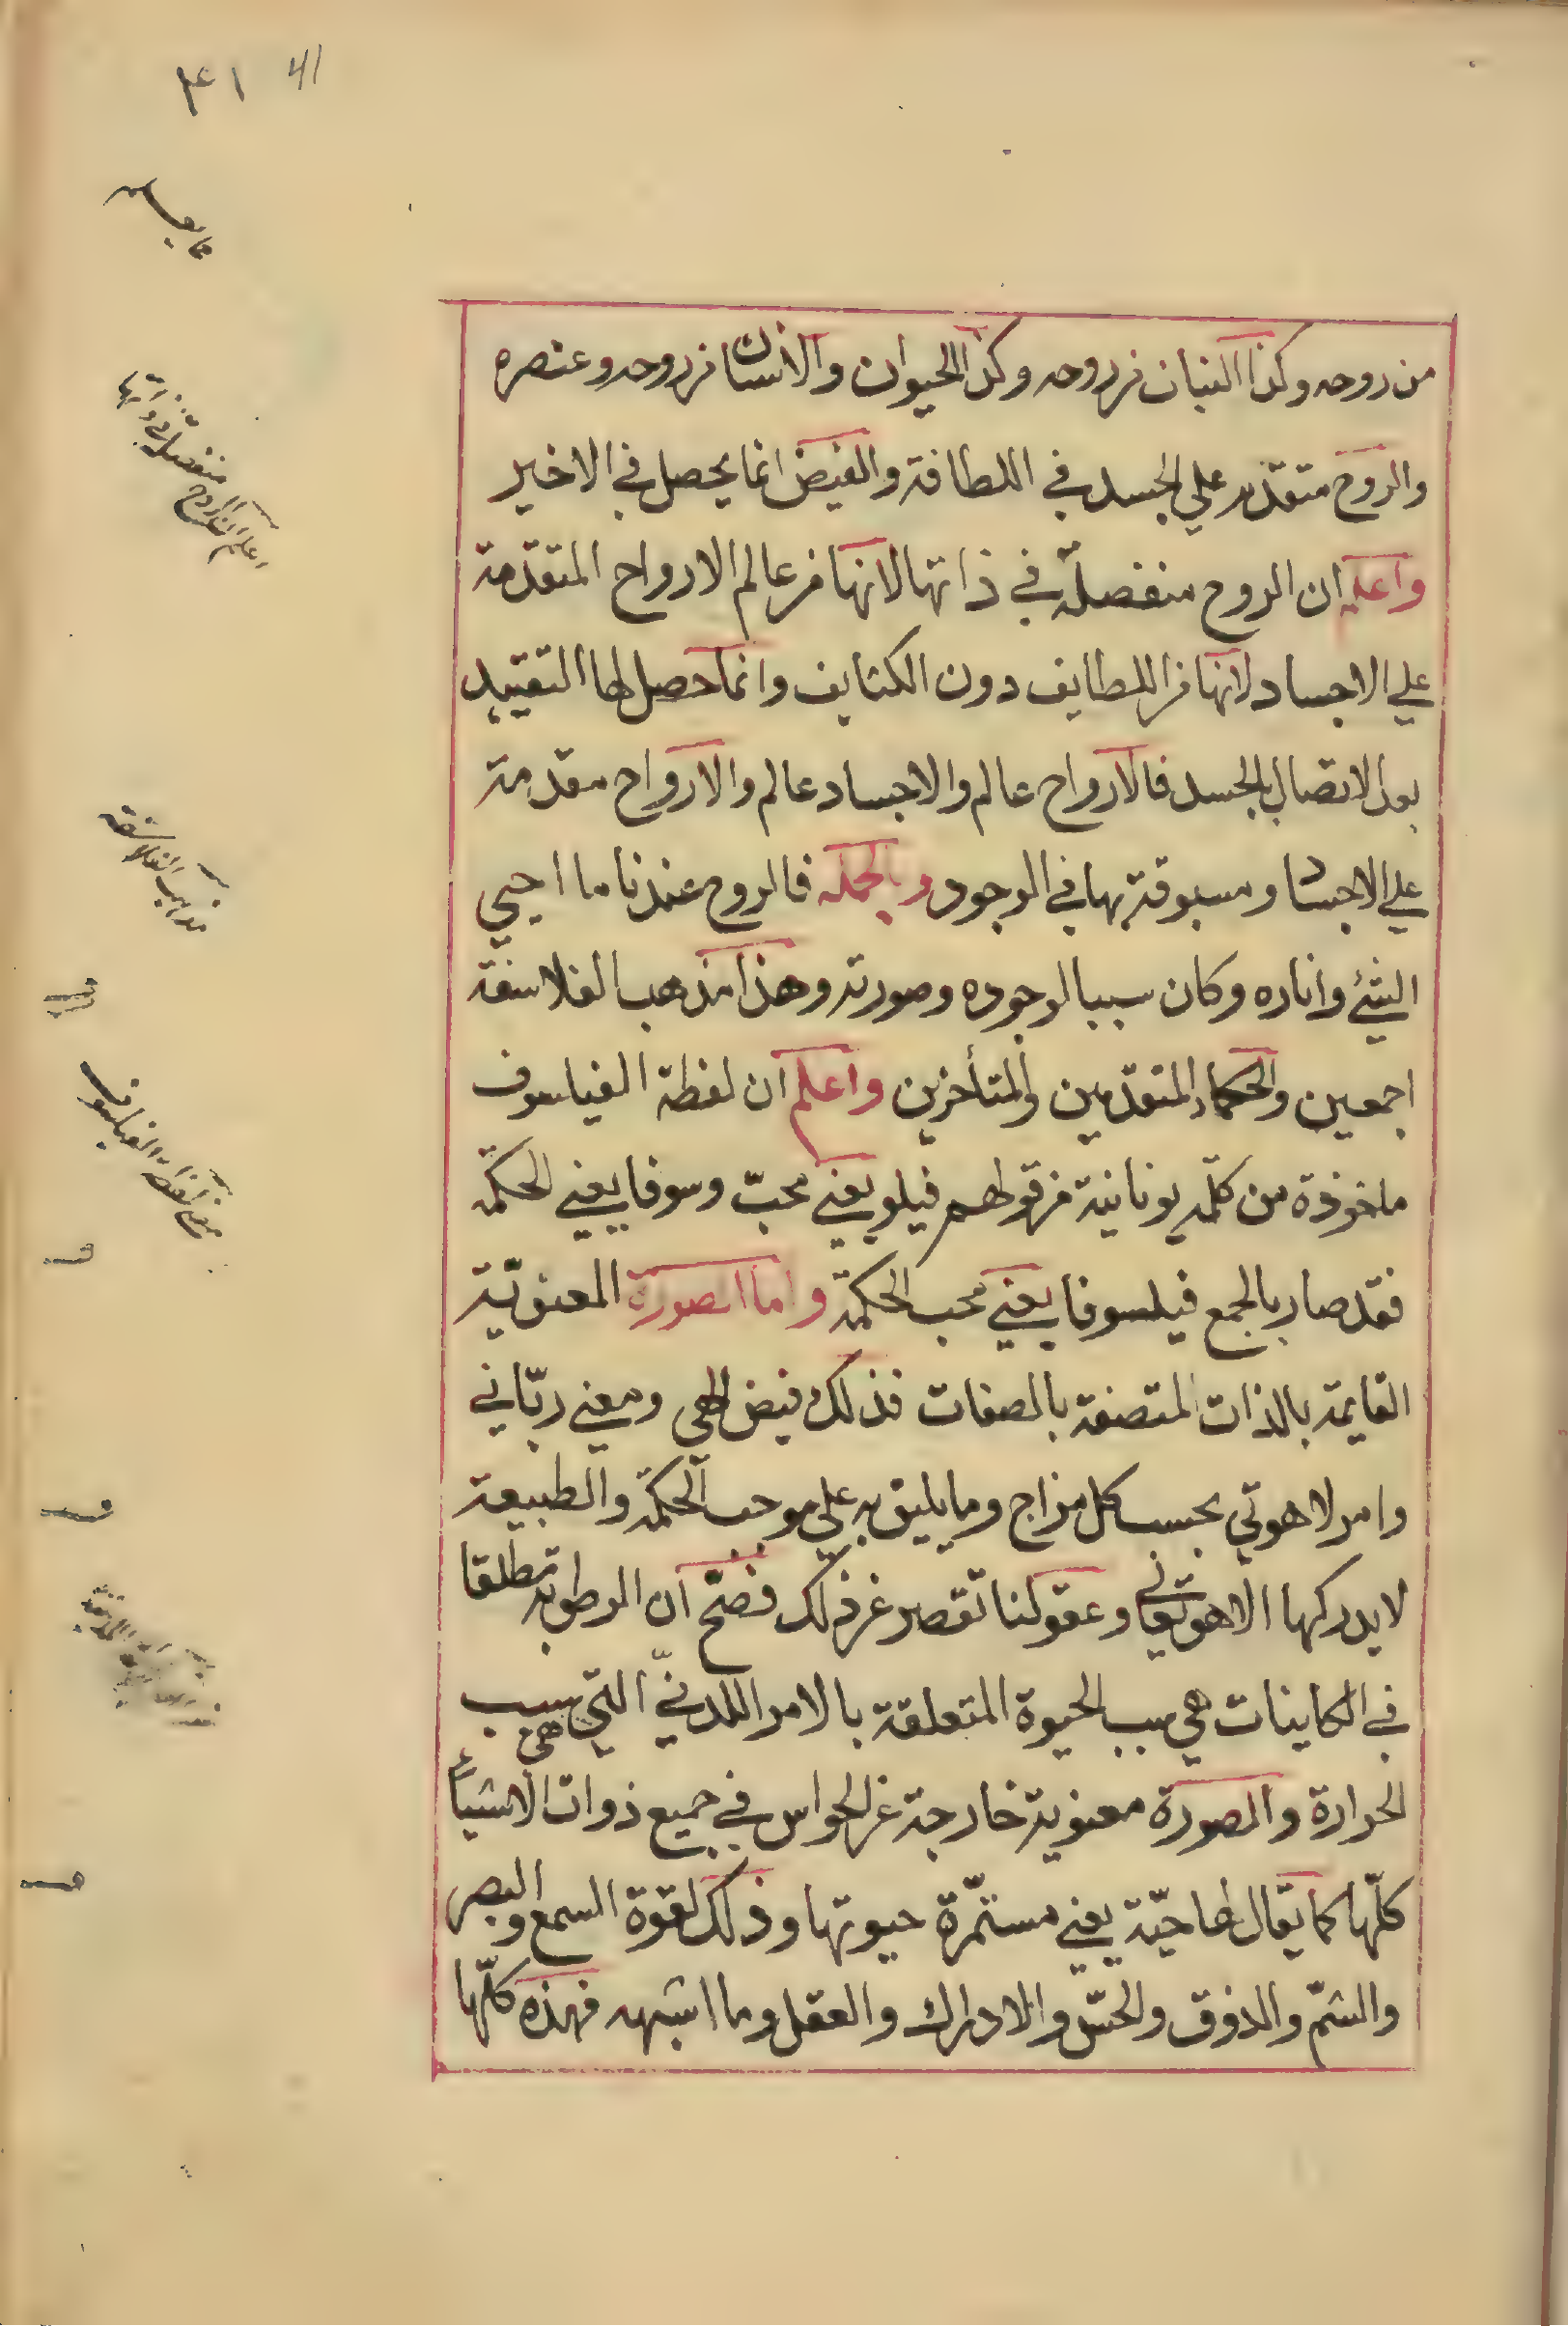 ٤١ 41
من روحه وكذا النبات من روحه وكذا الحيوان والانسان من روحه وعنصره
والروح متقدّمه علي الجسد في اللطافة والفيض انما يحصل في الاخير
واعلم ان الروح منفصلة في ذاتها لانها من عالم الارواح المتقدّمة
علي الاجساد لانها من اللطايف دون الكثايف وانما حصل لها التقييد
بعد الاتصال بالجسد فالارواح عالم والاجساد عالم والارواح مقدمة
علي الاجساد ومسبوقة بها في الوجود وبالجمله فالروح عندنا ما احيي
الشئ واناره وكان سببا لوجوده وصورته وهذا مذهب الفلاسفة
اجمعين والحكماء المتقدّمين والمتأخرين واعلم ان لفظة الفيلسوف
ماخوذة من كلمه يونانية من قولهم فيلو يعني محبّ وسوفا يعني الحكمة
فقد صار بالجمع فيلسوفا يعني محب الحكمة واما الصورة المعنويّة
القايمة بالذات المتصفة بالصفات فذلك فيض الهي ومعني ربّاني
وامر لاهوتي بحسب كل مزاج وما يليق به علي موجب الحكمة والطبيعة
لا يدركها الا هو تعالى وعقولنا تقصر عن ذلك فصّح ان الرطوبة مطلقا
في الكاينات هي سبب الحيوة المتعلقة بالامر اللدنيّ التي هي سبب
الحرارة والصورة معنوية خارجة عن الحواس في جميع ذوات الاشيأ
كلّها كما يقال لها حيّة يعني مستمّرة حيوتها وذلك لقوة السمع والبصر
والشمّ والذوق والحسّ والادراك والعقل وما اشبهه فهذه كلّها
اعلم ان الروح منفصلة في ذاتها
مذاهب الفلاسفة
معني لفظة الفيلسوف